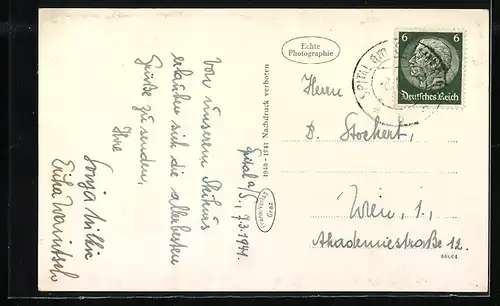 Echte
Photographie
Von unserem Skikurs
erlauben sich die allerbesten
Grüße zu senden,
Ihre
Sonja
Erika
Spital a/S., 7.3.1941.
1940 - 1941 Nachdruck verboten
Graz
6
6
Deutsches Reich
SPITAL am
Herrn
D. Stockert,
Wien, 1.,
Akademiestraße 12.